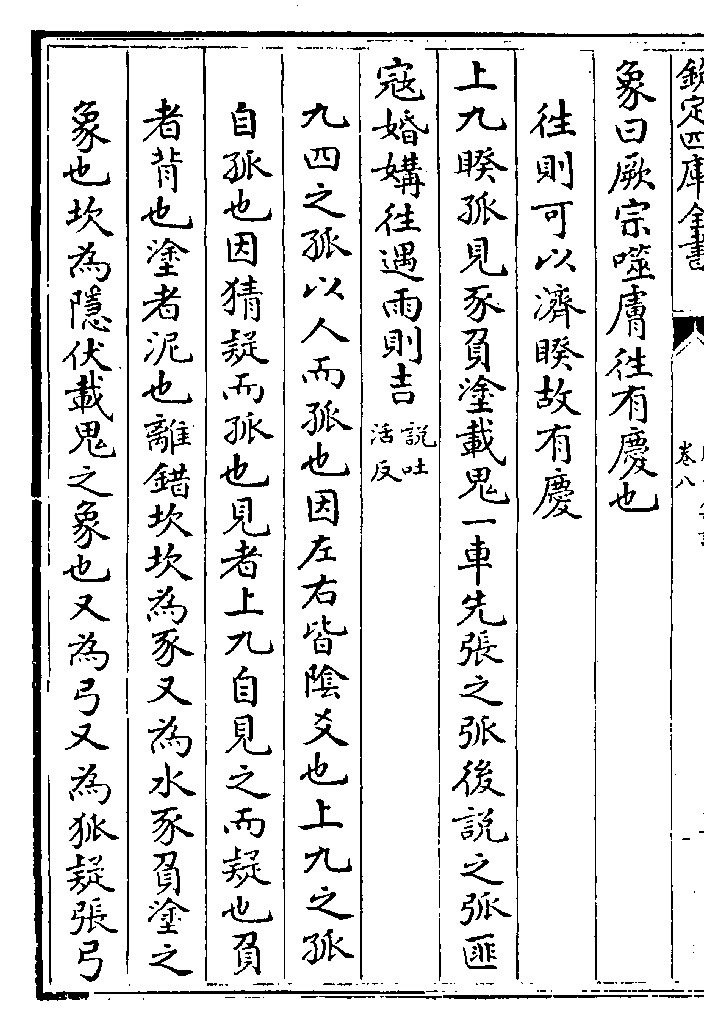 欽定四庫全書
卷八
象曰厥宗噬膚徃有慶也
徃則可以濟睽故有慶
上九睽孤見豕負塗載鬼一車先張之弧後說之弧匪
寇婚媾徃遇雨則吉說吐活反
九四之孤以人而孤也因左右皆陰爻也上九之孤
自孤也因猜疑而孤也見者上九自見之而疑也負
者背也塗者泥也離錯坎坎為豕又為水豕負塗之
象也坎為隱伏載鬼之象也又為弓又為狐疑張弓